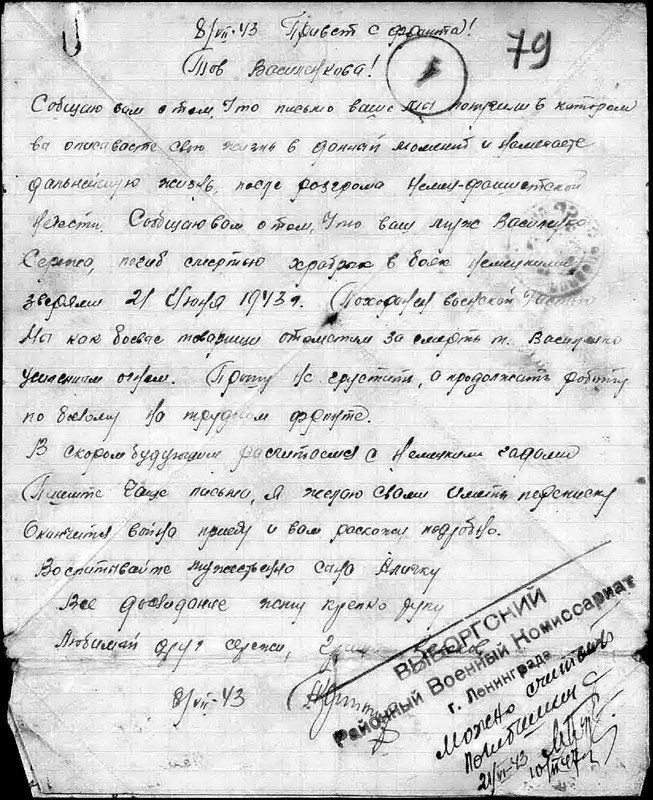 8/VII-43 Привет с фронта!
79
Тов Василькова!
Собщаю вам о том, что письмо ваше мы получили в котором
вы описываете свою жизнь в данный момент и намечаете
дальнейшую жизнь, после розгрома немец-фашистской
нечести. Собщаю вам о том, что ваш муж
Сережа, погиб смертью храбрых в боях немецкими
зверями 21 Июня 1943 г. Похоронен воинской
Мы как боевые товарищи отомстим за смерть т.
усиленым огнем. Прошу не грустить, а продолжать роботу
по боевому на трудовом фронте.
В скором будующим расчитаемся с немецкими гадами
Пишите чаще письма, я желаю свами иметь переписку
Окончится война приеду и вам раскажу подробно.
Воспитывайте мужественно сына Аличку
Все досвидание жму крепко руку
Любимый друг сережи,
8/VII-43
ВЫБОРГСКИЙ
Районный Военный Комиссариат
г. Ленинграда
Можно считать
Погибшим с
21/VI-43
10/II-47